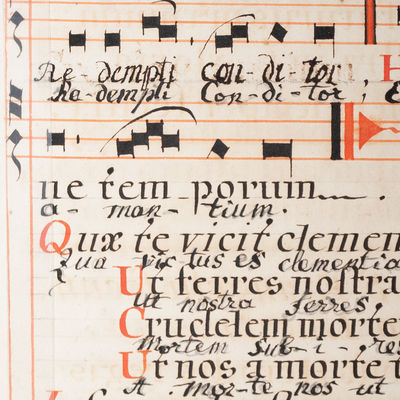 Re-dempti con-di-tor, H
Re-dempti Con-di-tor; E
ne tem porum
a-man-tium.
Quæ te vicit clemen
Qua vic tus es clementia
Ut ferres nostra
Ut nostra ferres,
Crudelem morte
mortem sub-i-res
Ut nos a morte t
A mor-te nos ut